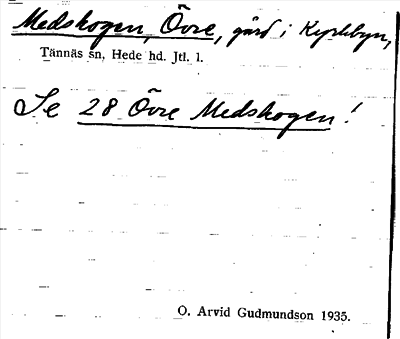 Medskogen, Övre, gård i Kyrkbyn,
Tännäs sn, Hede hd. Jtl. l.
Se 28 Övre Medskogen!
O. Arvid Gudmundson 1935.